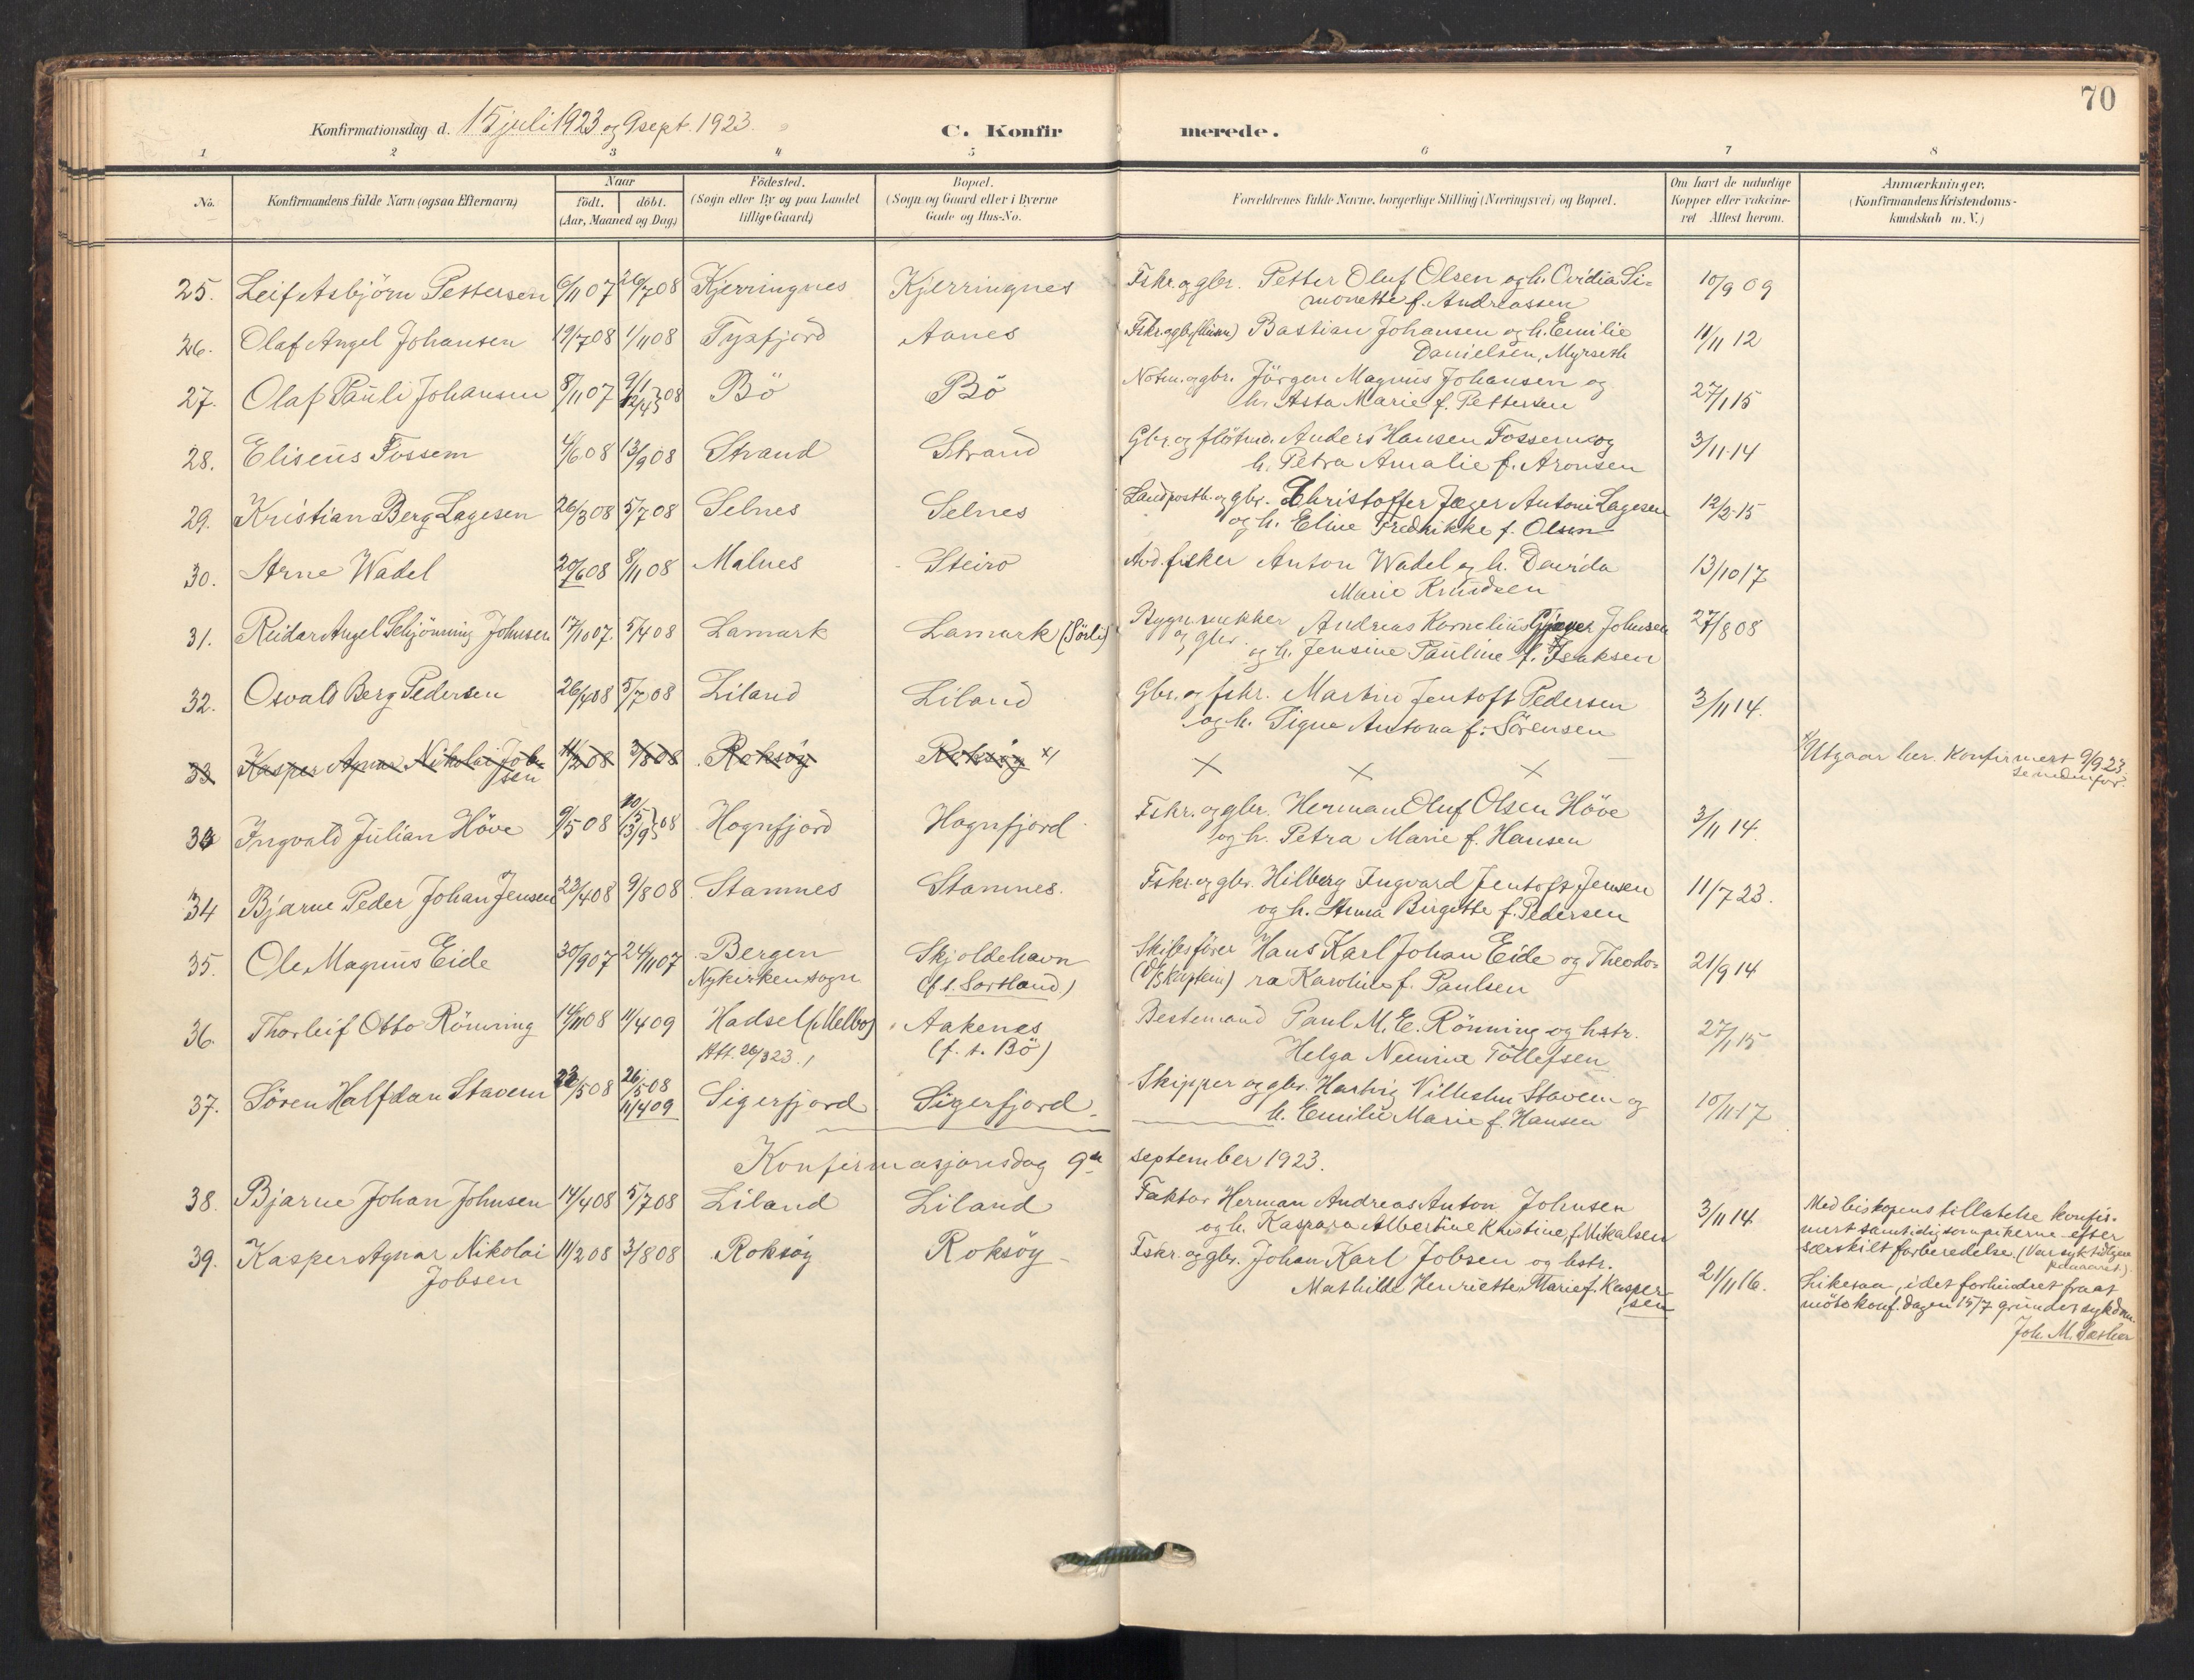 70
Konfirmationsdag d. 15 juli 1923 og 9 sept. 1923.
C. Konfirmerede.
1 2 3 4 5 6 7 8
No.
Konfirmandens fulde Navn (ogsaa Efternavn)
Naar
födt. döbt.
(Aar, Maaned og Dag)
Födested.
(Sogn eller By og paa Landet
tillige Gaard)
Bopæl.
(Sogn og Gaard eller i Byerne
Gade og Hus-No.
Forældrenes fulde Navne, borgerlige Stilling (Næringsvei) og Bopæl.
Om havt de naturlige
Kopper eller vakcine-
ret Attest herom.
Anmærkninger.
(Konfirmandens Kristendoms-
kundskab m. V.)
25. Leif Asbjörn Pettersen 6/11 07 26/7 08 Kjerringnes Kjerringnes Fskr. og gbr. Petter Oluf Olsen og h. Ovidia Si= 10/9 09
monette f. Andreassen
26. Olaf Angel Johansen 19/7 08 1/11 08 Tysfjord Aanes Fskr. og gbr. Bastian Johansen og h. Emilie 11/11 12
Danielsen, Myrseth
27. Olaf Pauli Johansen 8/11 07 9/1 12/4 } 08 Bö Bö Notm. og gbr. Jörgen Magnus Johansen og 27/1 15
h. Asta Marie f. Pettersen
28. Eliseus Fossem 4/6 08 13/9 08 Strand Strand Gbr. og flötm. Anders Hansen Fossem og 3/11 14
h. Petra Amalie f. Aronsen
29. Kristian Berg Lagesen 26/3 08 5/7 08 Selnes Selnes Landpostb. og gbr. Christoffer Jæger Antoni Lagesen 12/2 15
og h. Eline Fredrikke f. Olsen
30. Arne Wadel 20/6 08 8/11 08 Malnes Steiro Avd. fisker Anton Wadel og h. Davida 13/10 17
Marie Knudsen
31. Reidar Angel Schjönning Johnsen 17/10 07. 5/4 08 Lamark Lamark (Sörli) Bygn. snekker Andreas Kornelius Gjæver Johnsen 27/8 08
og gbr. og h. Jensine Pauline f. Isaksen
32. Osvald Berg Pedersen 26/4 08 5/7 08 Liland Liland Gbr. og fskr. Martin Jentoft Pedersen 3/11 14.
og h. Signe Antona f. Sörensen
33 Kasper Agnar Nikolai Job- 11/2 08 3/8 08 Roksöy Roksöy x) x x x x) Utgaar her. Konfirmert 9/9 23.
sen se nedenfor.
33 Ingvald Julian Höve 9/5 08 10/5 13/9 } 08 Hognfjord Hognfjord Fskr. og gbr. Herman Oluf Olsen Höve 3/11 14.
og h. Petra Marie f. Hansen
34 Bjarne Peder Johan Jensen 23/4 08 9/8 08 Stamnes Stamnes. Fskr. og gbr. Hilberg Ingvard Jentoft Jensen 11/7 23.
og h. Anna Birgitte f. Pedersen
35. Ole Magnus Eide 30/9 07 24/11 07 Bergen Skjoldehavn Skibsförer Hans Karl Johan Eide og Theodo= 21/9 14
Nykirken sogn (f. t. Sortland) (D/S kaptein) ra Karoline f. Paulsen
36. Thorleif Otto Rönning 14/11 08 11/4 09 Hadsel (Melbo) Aakenes Bestemand Paul M. E. Rönning og hstr. 27/1 15
Att. 26/3 23. (f. t. Bö) Helga Tollefsen
37. Sören Halfdan Stavem 22/5 08 26/5 08 Sigerfjord Sigerfjord Skipper og gbr. Hartvig Vilhelm Stavem og 10/11 17
11/4 09 h. Emilie Marie f. Hansen
Konfirmasjonsdag 9de september 1923.
38. Bjarne Johan Johnsen 14/4 08 5/7 08 Liland Liland Faktor Herman Andreas Anton Johnsen 3/11 14 Med biskopens tillatelse konfir-
og h. Kaspara Albertine Kristine f. Mikalsen mert samtidig som pikerne efter
særskilt forberedelse. (Var syk
39. Kasper Agnar Nikolai 11/2 08 3/8 08 Roksöy Roksöy Fskr. og gbr. Johan Karl Jobsen og hstr. 21/11 16. Likesaa, idet forhindret fra at
Jobsen Mathilde Henriette Marie f. Kasper= möte konf. dagen 15/7 grundet sykdom.
sen Joh. M. Sæther